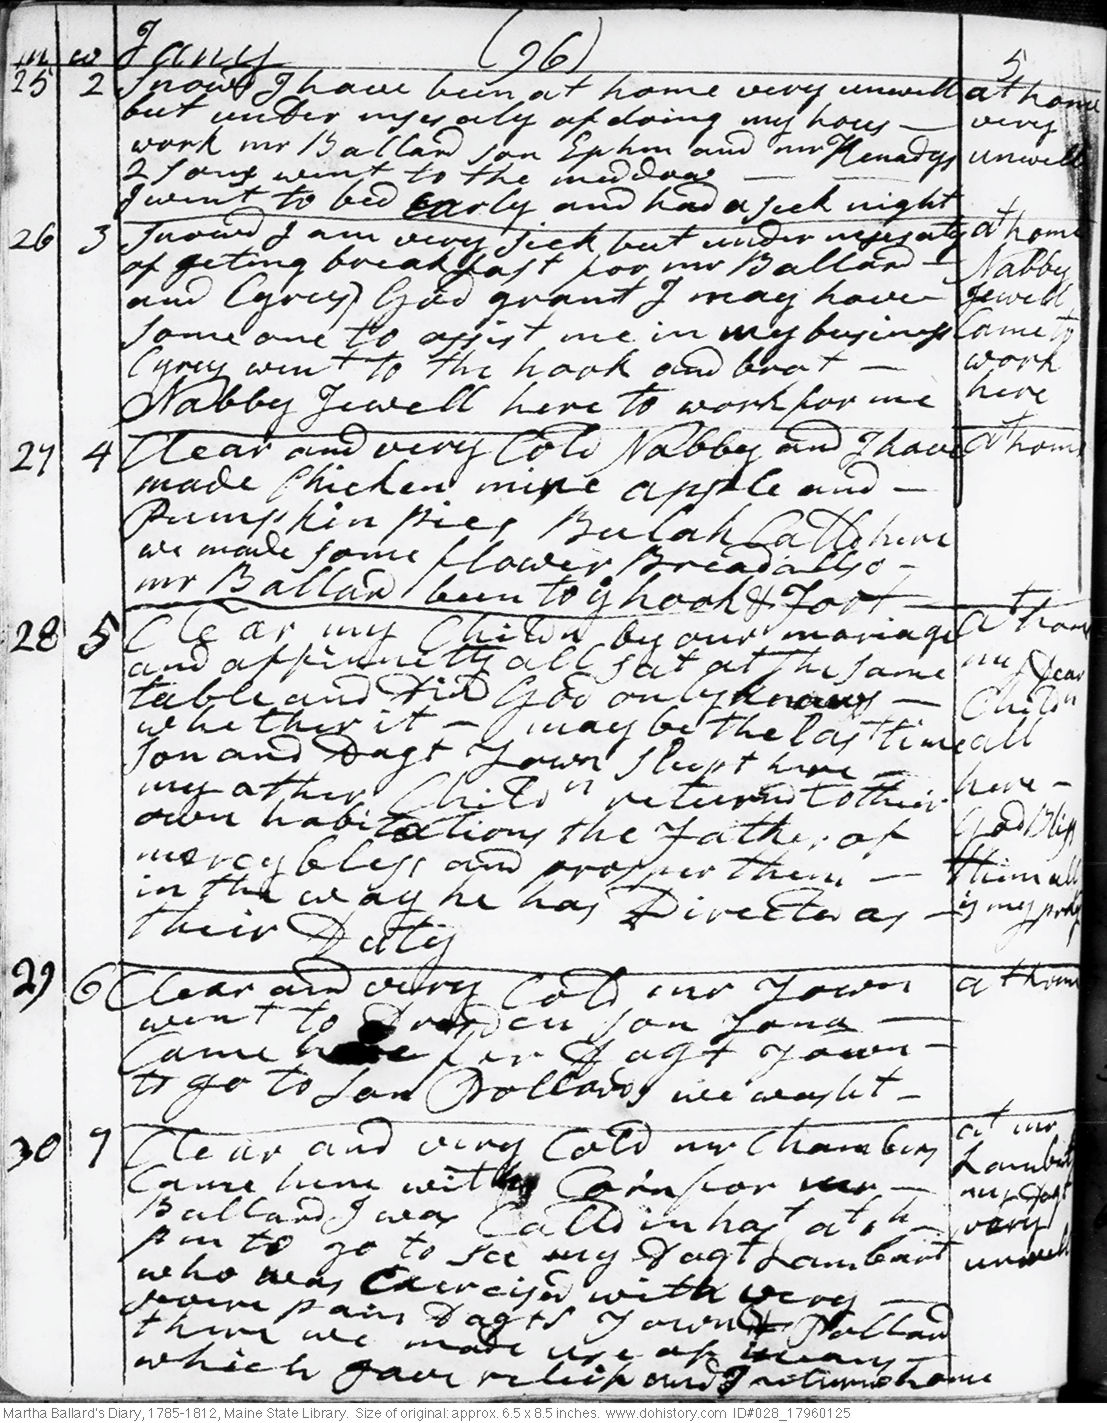 m w Jany (96) 5
25 2 Snowd I have been at home very unwell at home
but under nesesaly of doing my hous — very
work mr Ballard son Ephm and mr Kenadys unwell
2 sons went to the meddow —
I went to bed Early and had a sick night
26 3 Snowd I am very sick but under nesesaty at home
of geting breakfast for mr Ballard — Nabby
and Cyrus) God grant I may have Jewell
some one to assist me in my business Came to
Cyrus went to the hook and brot — work
Nabby Jewell here to work for me here
27 4 Clear and very Cold Nabby and I have at home
made Chicken mine apple and —
Pumpkin Pies Bulah Calld here
we made some flower Bread allso —
mr Ballard been to ye hook & Fort —
28 5 Clear my Childn by our mariage at home
and affinnetty all sat at the same my Dear
table and Did God only knows — Childn
whether it — may be the last time all
son and Dagt Town sleept here — here —
my other Childn returnd to their God Bless
own habitations the Father of them all
mercy bless and prosper them — is my pray
in the way he has Directed as —
their Duty
29 6 Clear and very Cold mr Town at home
went to Dresden son Jona —
Came here for Dagt Town —
to go to son Pollards we washt —
30 7 Clear and very Cold mr Chambers at mr
Came here with Corn for mr — Lambard
Ballard I was Calld in hast at h my Dagt
pm to go to see my Dagt Lambart very
who was Exercised with very — unwell
severe pain Dagts Town & Pollard
there we made use of means —
which gave relief and I returnd home
Martha Ballard's Diary, 1785-1812, Maine State Library. Size of original: approx. 6.5 x 8.5 inches. www.dohistory.com ID#028_17960125